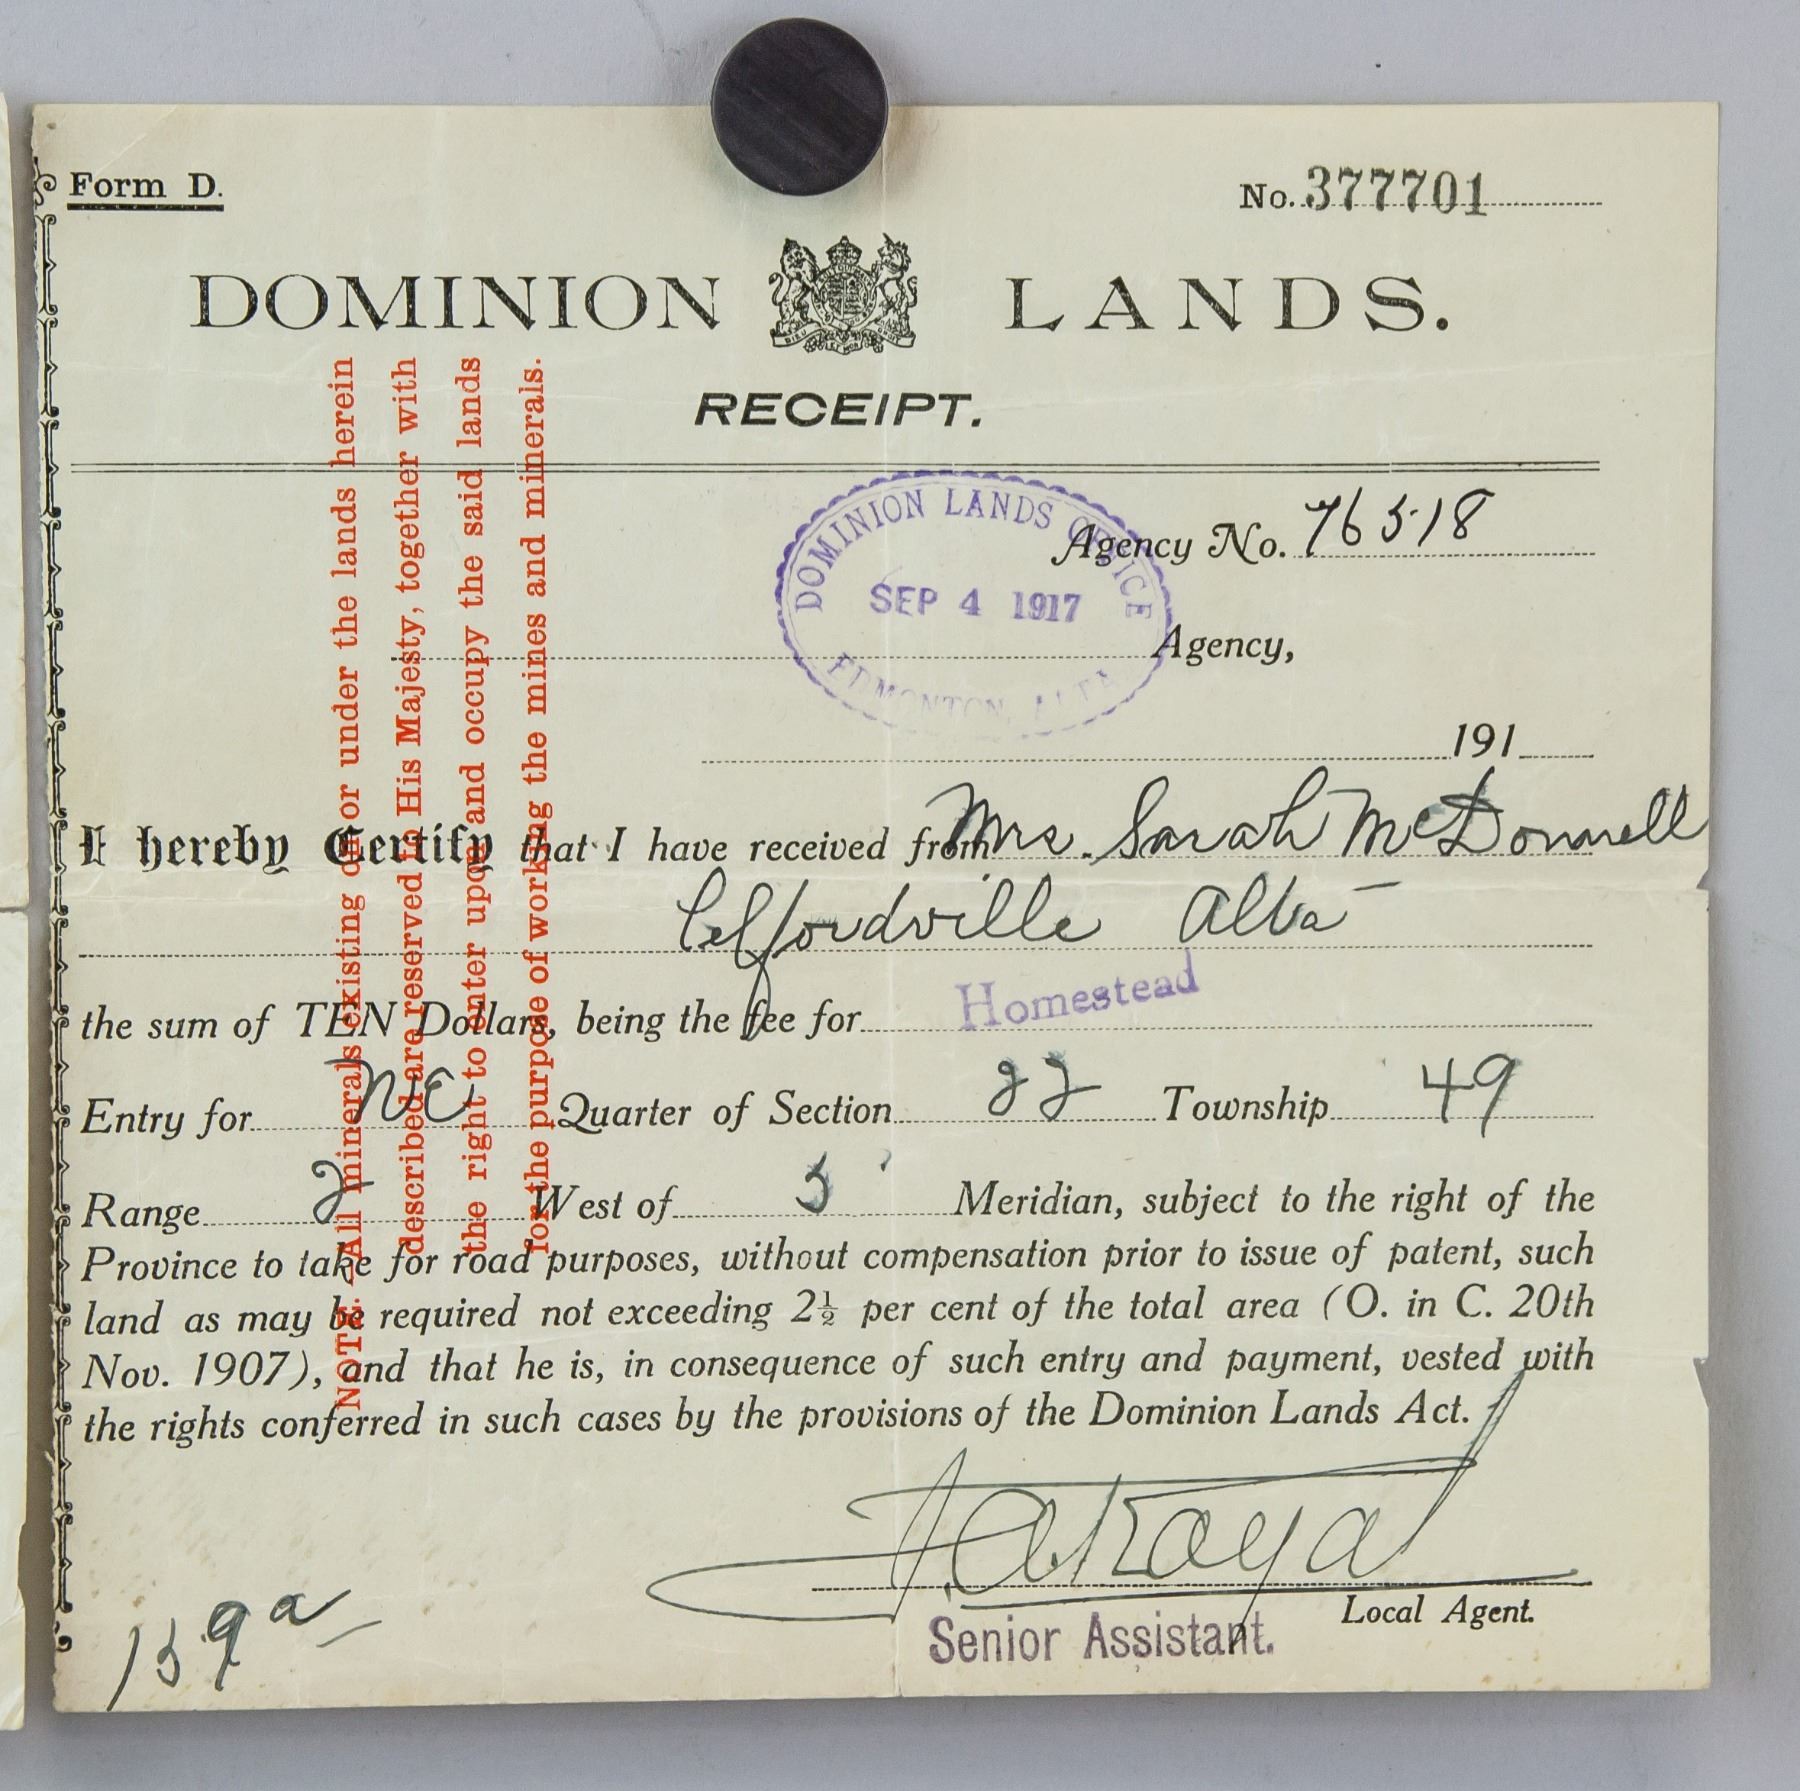 Form D.
No. 377701
DOMINION LANDS.
DIEU ET MON DROIT
RECEIPT.
DOMINION LANDS OFFICE
SEP 4 1917
EDMONTON, ALTA
Agency No. 76518
Agency,
191
I hereby Certify that I have received from Mrs. Sarah McDonnell
Alta
the sum of TEN Dollars, being the fee for Homestead
Entry for NE Quarter of Section 22 Township 49
Range 2 West of 5 Meridian, subject to the right of the
Province to take for road purposes, without compensation prior to issue of patent, such
land as may be required not exceeding 2½ per cent of the total area (O. in C. 20th
Nov. 1907), and that he is, in consequence of such entry and payment, vested with
the rights conferred in such cases by the provisions of the Dominion Lands Act.
Local Agent.
Senior Assistant.
159a
NOTE.—All minerals existing on or under the lands herein
described are reserved to His Majesty, together with
the right to enter upon and occupy the said lands
for the purpose of working the mines and minerals.